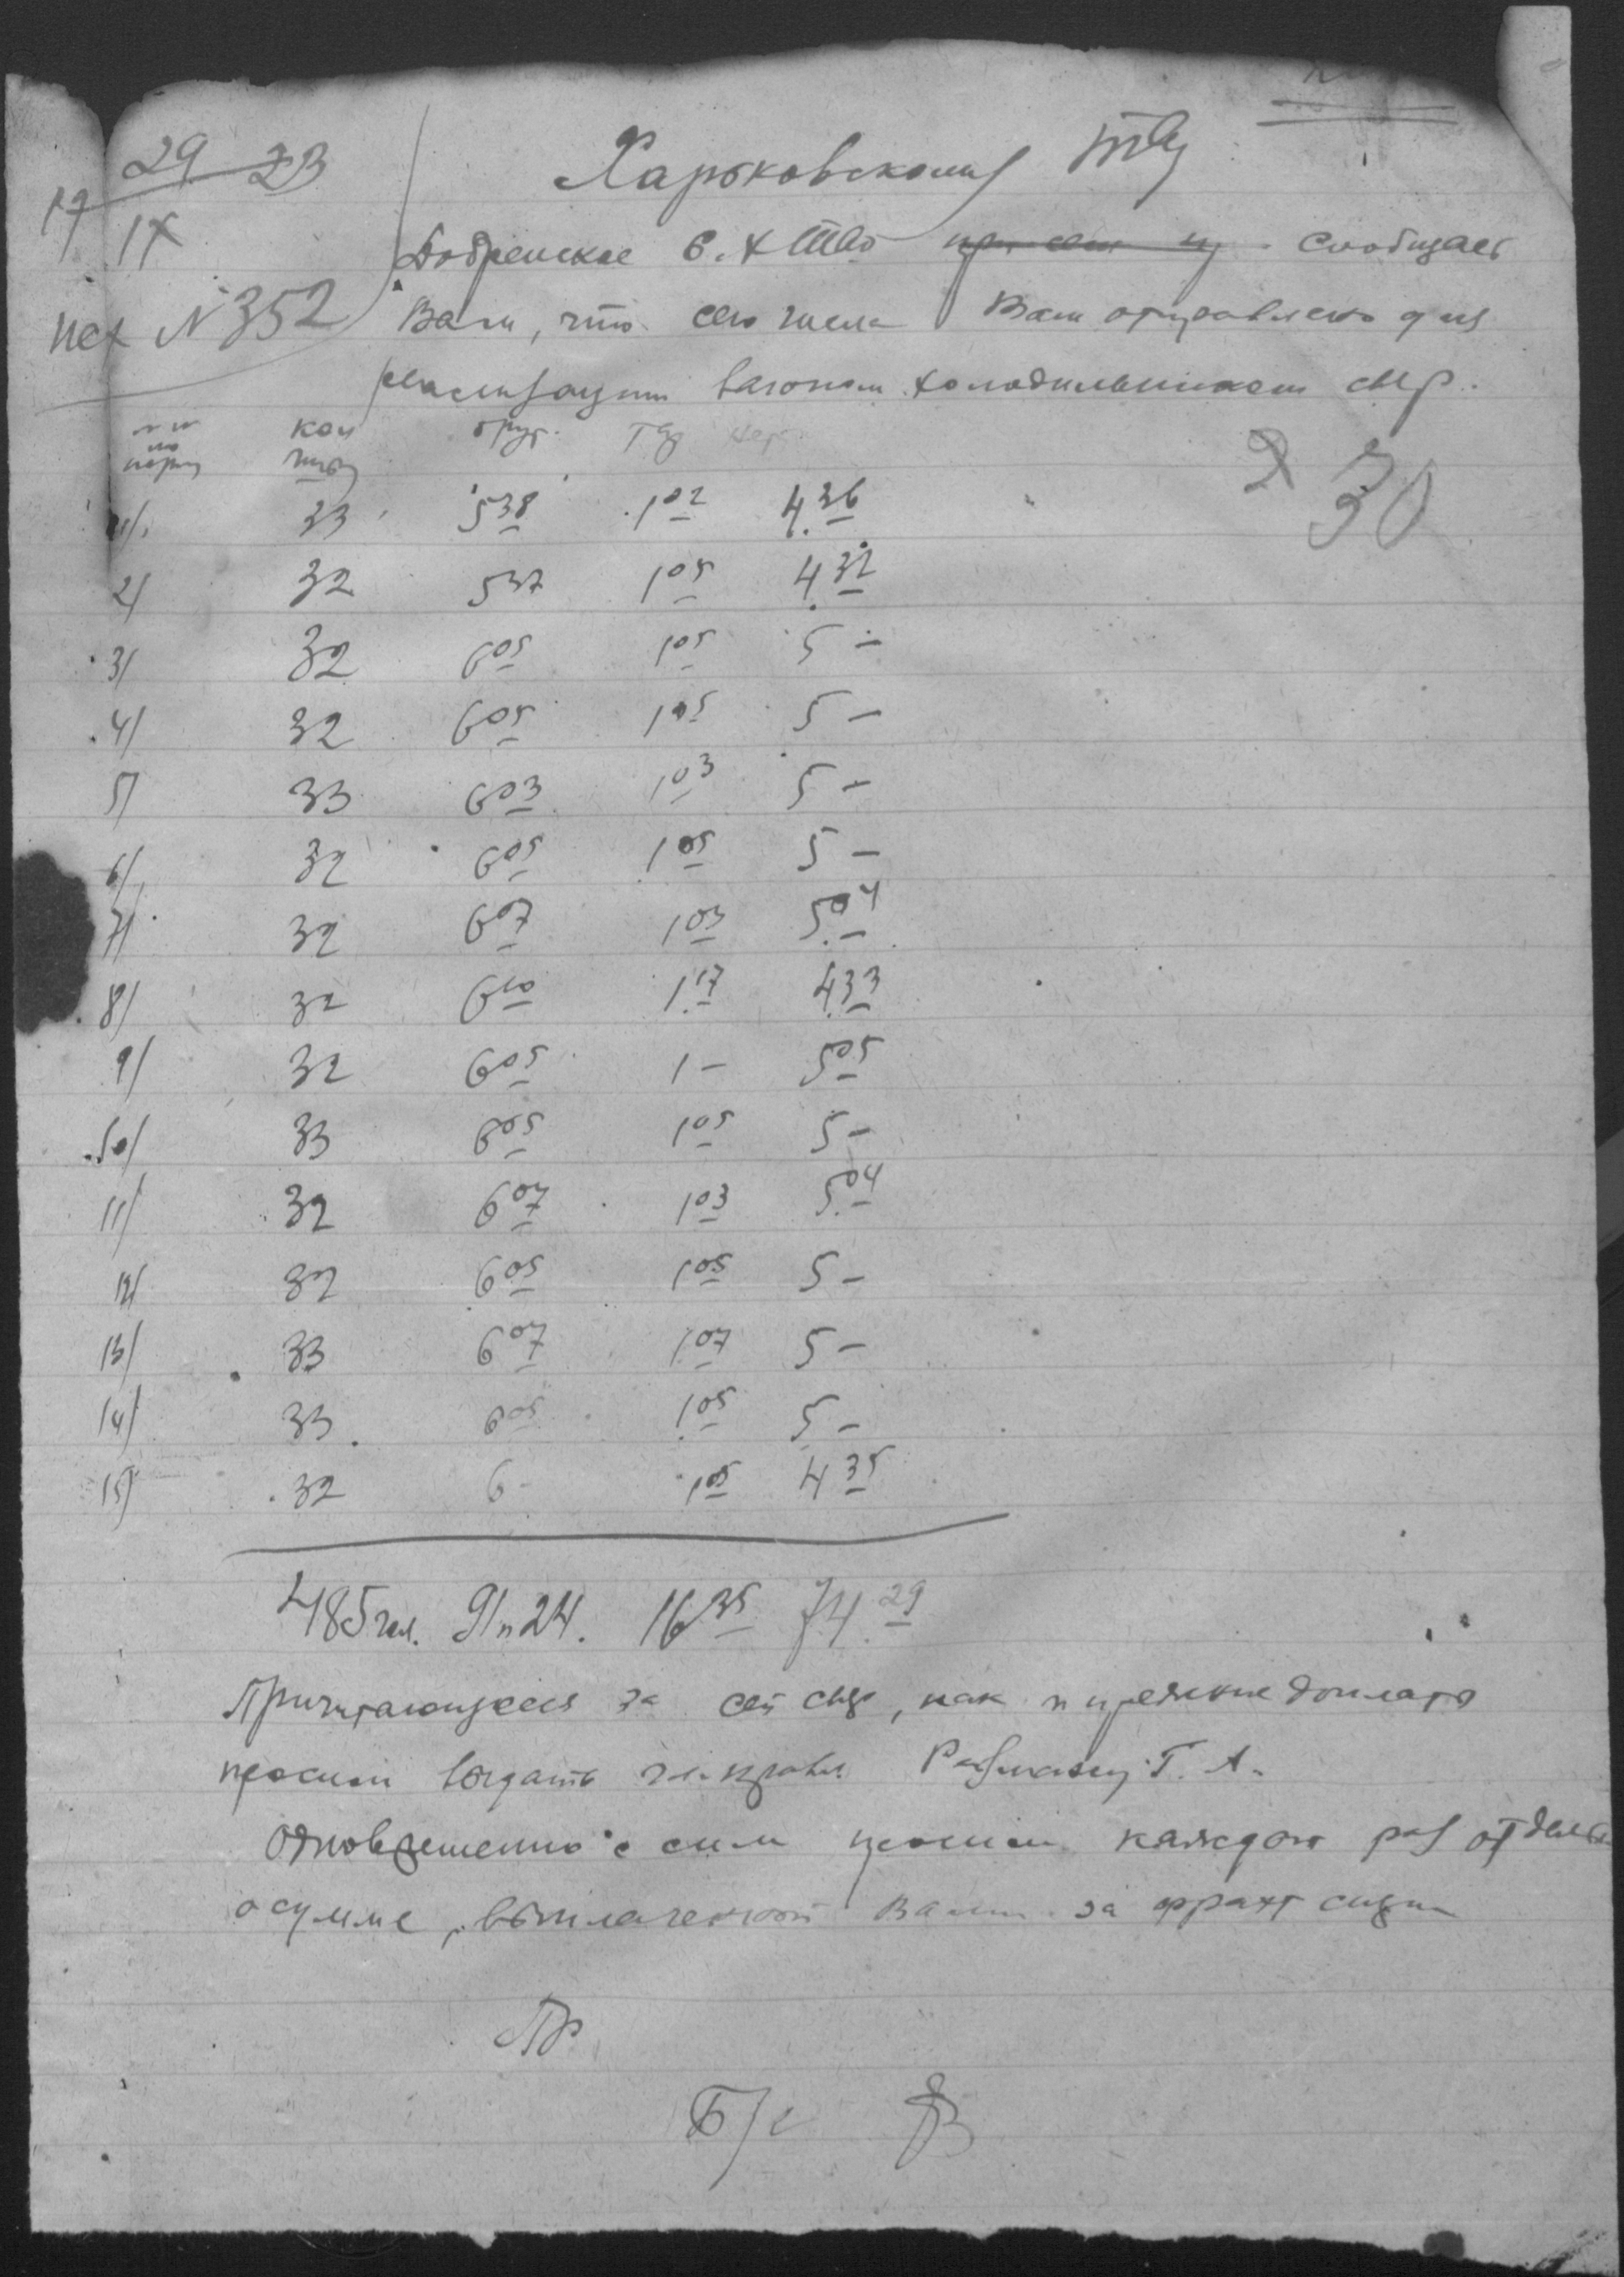 29 23
17 IX
исх N 352
Харьковскому
Добренское С. Х Тво сообщает
Вам, что сего числа Вам отправлено для
реализации вагоном холодильником сыр.
NN по поряд кол честв брут. тар нет.
2 30
1/ 33 5 38 1 02 4. 36
2/ 32 5 37 1 05 4 32
3/ 32 6 05 1 05 5 –
4/ 32 6 05 1 05 5 –
5/ 33 6 03 1 03 5 –
6/ 32 6 05 1 05 5 –
7/ 32 6 07 1 03 5. 04
8/ 32 6 10 1. 17 4. 33
9/ 32 6 05 1 – 5 05
10/ 33 6 05 1 05 5 –
11/ 32 6 07 1 03 5. 04
12/ 32 6 05 1 05 5 –
13/ 33 6 07 1 07 5 –
14/ 33 6 05 1 05 5 –
15/ 32 6 – 1 05 4 35
485 гол. 91п 24. 16 35 74. 29
Причитающуюся за сей сыр, как и прежние доплаты
просим выдать чл. правл. Г. А.
Одновременно с сим просим каждого раз
о сумме, выплаченной Вами за фрахт
Пр
Б/с